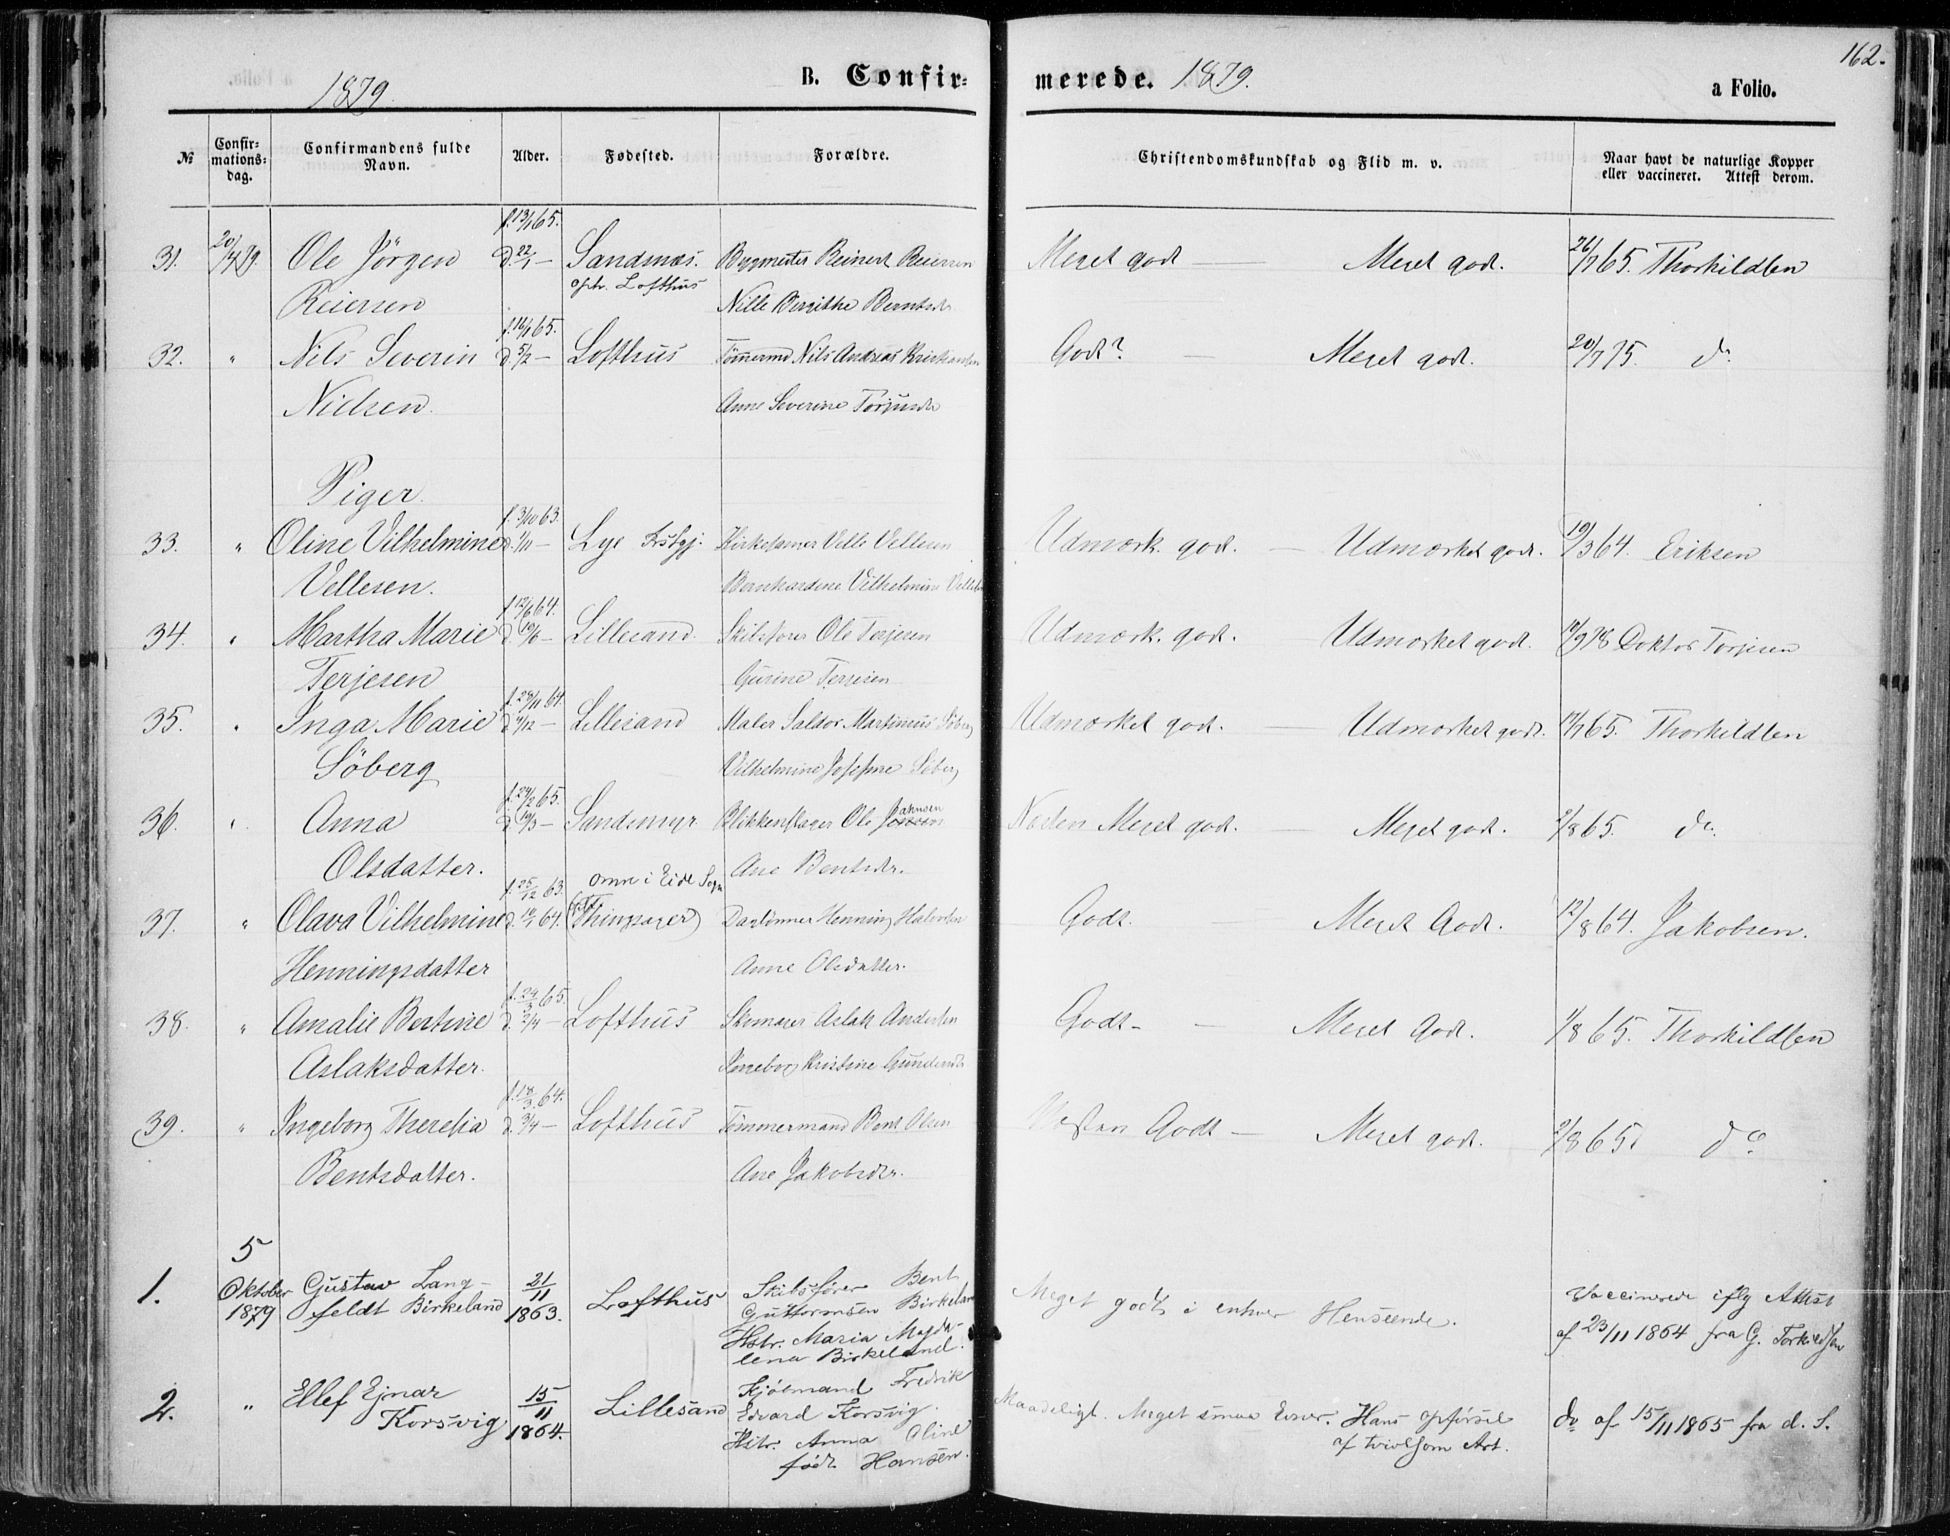 162.
1879 B. Confir= merede. 1879. a Folio.
№ Confir=mations=dag. Confirmandens fulde Navn. Alder. Fødested. Forældre. Christendomskundskab og Flid m. v. Naar havt de naturlige Kopper eller vaccineret. Attest derom.
f. 13/1 65.
31. 20/4 79. Ole Jörgen d. 22/1 — Sandsnæs. Bygmester Reinert Reiersen Meget godt — Meget god. 26/7 65. Thorkildsen
Reiersen Lofthus Nille Bergithe Berntsdr
f. 16/1 65.
32. " Nils Severin d. 5/2 — Lofthus Tömmermd Nils Andreas Kristiansen Godt? Meget god. 20/7 75. do
Nielsen. Anne Severine Torjusdr
Piger.
f. 3/10 63.
33. " Oline Vilhelmine d. 1/11 — Lye Velle Vellesen Udmærk. godt. — Udmærket god. 19/3 64. Eriksen
Vellesen. Bernhardine Vilhelmine Vellesen
f. 12/6 64.
34. " Martha Marie d. 19/6 — Lillesand. Skibsfører Ole Terjesen Udmærk. godt. Udmærket god. 78 Doktor Torjesen
Terjesen Gurine Terjesen
f. 28/11 64.
35. " Inga Marie Lillesand Maler Martinius Söberg Udmærket godt. — Udmærket god. 65. Thorkildsen
Söberg Vilhelmine Josefine Söberg
f. 24/2 65.
36. " Anna d. 19/3 — Sandsmyr Blikkenslager Ole Jahnsen Næsten Meget godt. — Meget god. 2/8 65. do.
Olsdatter. Ane Bentsdr.
f. 25/12 63. omm i Eide Sogn
37. " Olava Vilhelmine 64. Thingsager) Daglönner Henning Halvorsen Godt. Meget God. 12/8 64. Jakobsen.
Henningsdatter Anne Olsdatter.
f. 24/3 65.
38. " Amalie Bertine d. 2/4 — Lofthus Skomager Aslak Andersen Godt — Meget God. 1/8 65. Thorkildsen
Aslaksdatter. Ingeborg Kristine Gundersdr
f. 18/3 64.
39. " Ingeborg Theresia d. 3/4 — Lofthus Tömmermand Bent Olsen Næsten Godt — Meget god. 2/8 65. do
Bentsdatter. Ane Jakobsdr.
5
1. Oktober Gustav Lang- 21/11 Lofthus Skibsfører Bent Meget godt i enhver Henseende. Vaccinerede iflg Attest
1879 feldt Birkeland 1863. Guttormsen Birkeland af 23/11 1864 fra G. Torkildsen
Hstr. Maria Magda-
lena Birkeland.
2. " Ellef Ejnar 15/11 Lillesand Fredrik Maadeligt. Meget smaa Evner. Hans opförsel do af 15/11 1865 fra d. S.
Korsvig 1864. Edvard Korsvig. af tvivlsom Art.
Hstr. Anna Oline
födt Hansen.